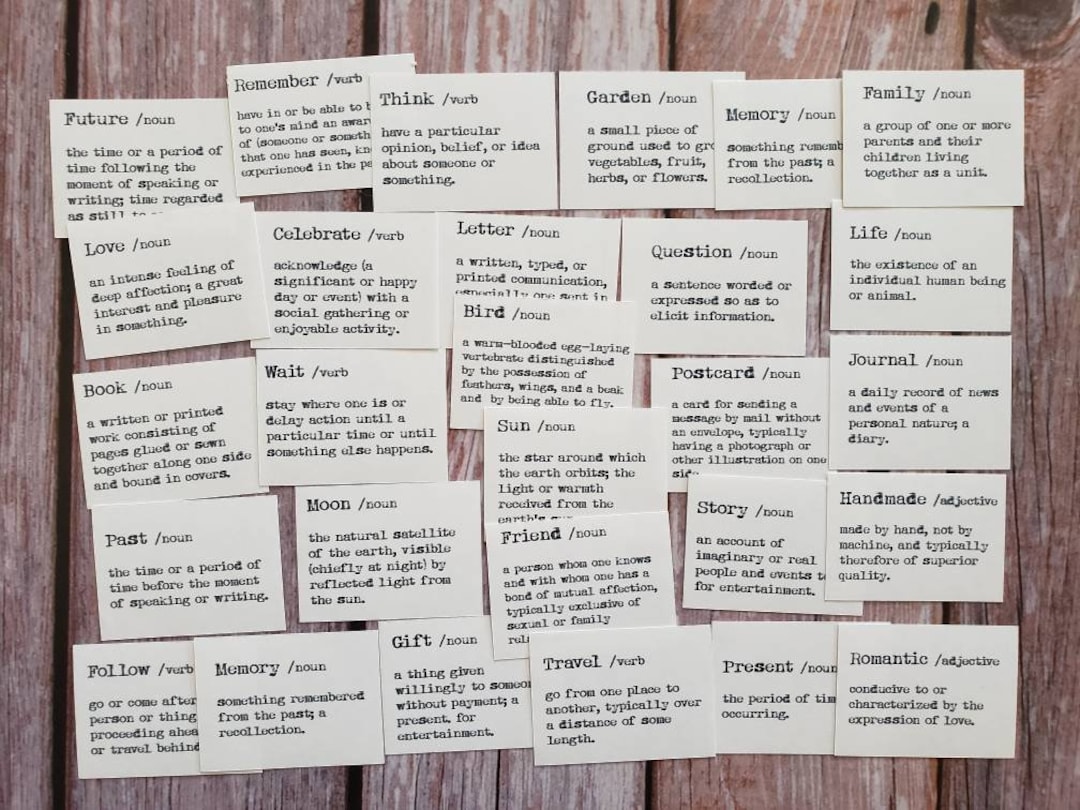 Future /noun
the time or a period of
time following the
moment of speaking or
writing; time regarded
as still to
Remember /verb
have in or be able to b
to one's mind an awar
of (someone or someth
that one has seen, kn
experienced in the pa
Think /verb
have a particular
opinion, belief, or idea
about someone or
something.
Garden /noun
a small piece of
ground used to gro
vegetables, fruit,
herbs, or flowers.
Memory /noun
something rememb
from the past; a
recollection.
Family /noun
a group of one or more
parents and their
children living
together as a unit.
Love /noun
an intense feeling of
deep affection; a great
interest and pleasure
in something.
Celebrate /verb
acknowledge (a
significant or happy
day or event) with a
social gathering or
enjoyable activity.
Letter /noun
a written, typed, or
printed communication,
especially one sent in
Question /noun
a sentence worded or
expressed so as to
elicit information.
Life /noun
the existence of an
individual human being
or animal.
Bird /noun
a warm-blooded egg-laying
vertebrate distinguished
by the possession of
feathers, wings, and a beak
and by being able to fly.
Book /noun
a written or printed
work consisting of
pages glued or sewn
together along one side
and bound in covers.
Wait /verb
stay where one is or
delay action until a
particular time or until
something else happens.
Postcard /noun
a card for sending a
message by mail without
an envelope, typically
having a photograph or
other illustration on one
side.
Journal /noun
a daily record of news
and events of a
personal nature; a
diary.
Sun /noun
the star around which
the earth orbits; the
light or warmth
received from the
earth's
Past /noun
the time or a period of
time before the moment
of speaking or writing.
Moon /noun
the natural satellite
of the earth, visible
(chiefly at night) by
reflected light from
the sun.
Friend /noun
a person whom one knows
and with whom one has a
bond of mutual affection,
typically exclusive of
sexual or family
rel
Story /noun
an account of
imaginary or real
people and events t
for entertainment.
Handmade /adjective
made by hand, not by
machine, and typically
therefore of superior
quality.
Follow /verb
go or come after
person or thing
proceeding ahea
or travel behind
Memory /noun
something remembered
from the past; a
recollection.
Gift /noun
a thing given
willingly to someon
without payment; a
present. for
entertainment.
Travel /verb
go from one place to
another, typically over
a distance of some
length.
Present /noun
the period of tim
occurring.
Romantic /adjective
conducive to or
characterized by the
expression of love.